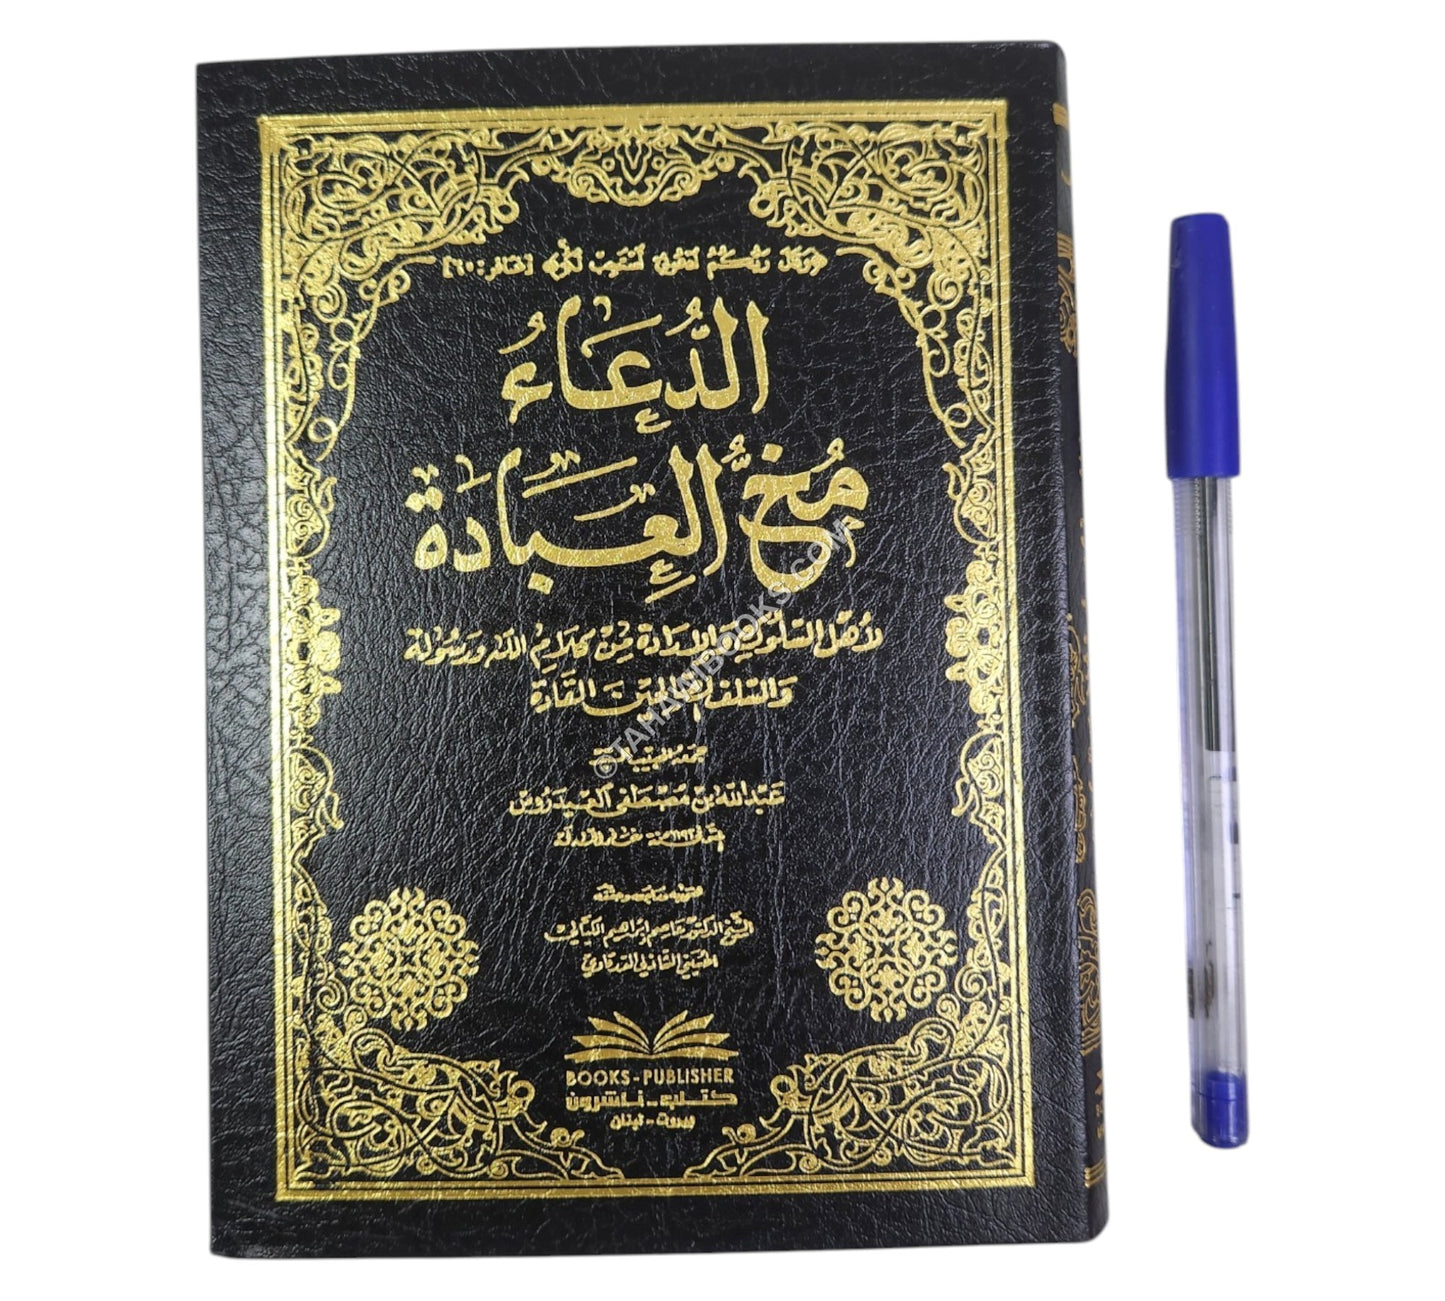 ﴿وَقَالَ رَبُّكُمُ ادْعُونِي أَسْتَجِبْ لَكُمْ﴾ [غافر: ٦٠]
الدُّعَاءُ
مُخُّ العِبَادَة
لأهل السلوك والإرادة من كلام الله ورسوله
والسلف الصالحين القادة
جمعه الحبيب
عبد الله بن مصطفى العيدروس
المتوفى سنة
الشيخ الدكتور عاصم إبراهيم الكيالي
الحسيني الشاذلي الدرقاوي
BOOKS-PUBLISHER
كتاب-ناشرون
بيروت-لبنان
©TAHAWIBOOKS.COM